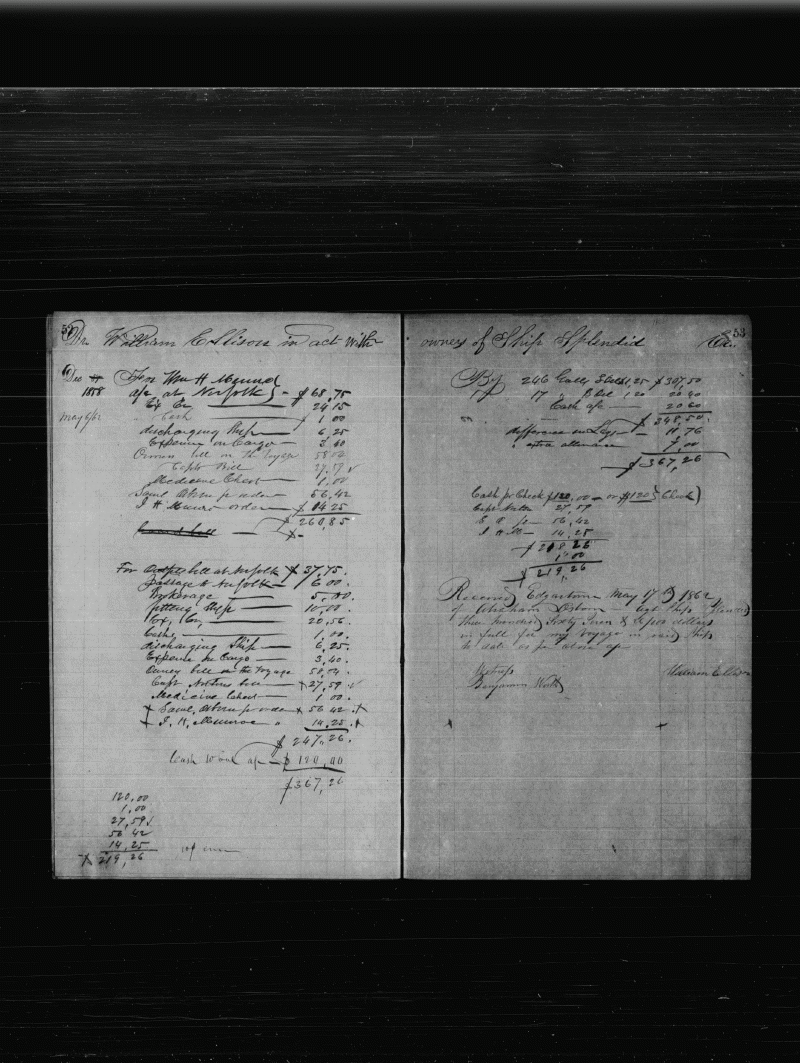 52
Dr. William Ellison in act with
Dec
1858 For Wm H Munro
a/c at Norfolk - $68,75
Ex Ex 24,15
May 6/62 Cash $1 00
discharging Ship 6 25
Expense on Cargo 3 40
Owners bill on the Voyage 58 04
Capts Bill 27.59
Medicine Chest 1,00
Saml Osborn pr order 56,42
I H Munro order $14 25
$260,85
For bill at Norfolk $37,75.
passage to Norfolk 6 00.
Brokerage 5,00
fitting Ship 10,00
Ex, Ex, 20,56.
Cash, 1,00.
discharging Ship 6,25.
Expense on Cargo 3,40.
Owners bill on the Voyage
Capt bill 27,59
Medicine Chest 1 00.
Saml, Osborn pr order 56 42
I. H, Munroe " 14,25.
$247,26.
Cash to a/c $120,00
$367,26
120,00
1,00
27,59
56 42
14,25
219,26
53
owners of Ship Splendid Cr.
By 246 Galls 1,25 $307,50
17 " 1 20 20 40
Cash a/c 20 60
$348,50
difference on Lays 11 76
" extra allowance 7,00
$367,26
Cash pr Check $120,00 or $120 Check)
Capt 27,59
56,42
I H M 14,25
$218 26
1 00
$219,26
Received Edgartown May 17th 1862
of Abraham Osborn Agt Ship Splendid
three hundred Sixty Seven & 26/100 dollars
in full for my Voyage in said Ship
to date as pr above a/c
Witness William Ellison
Benjamin